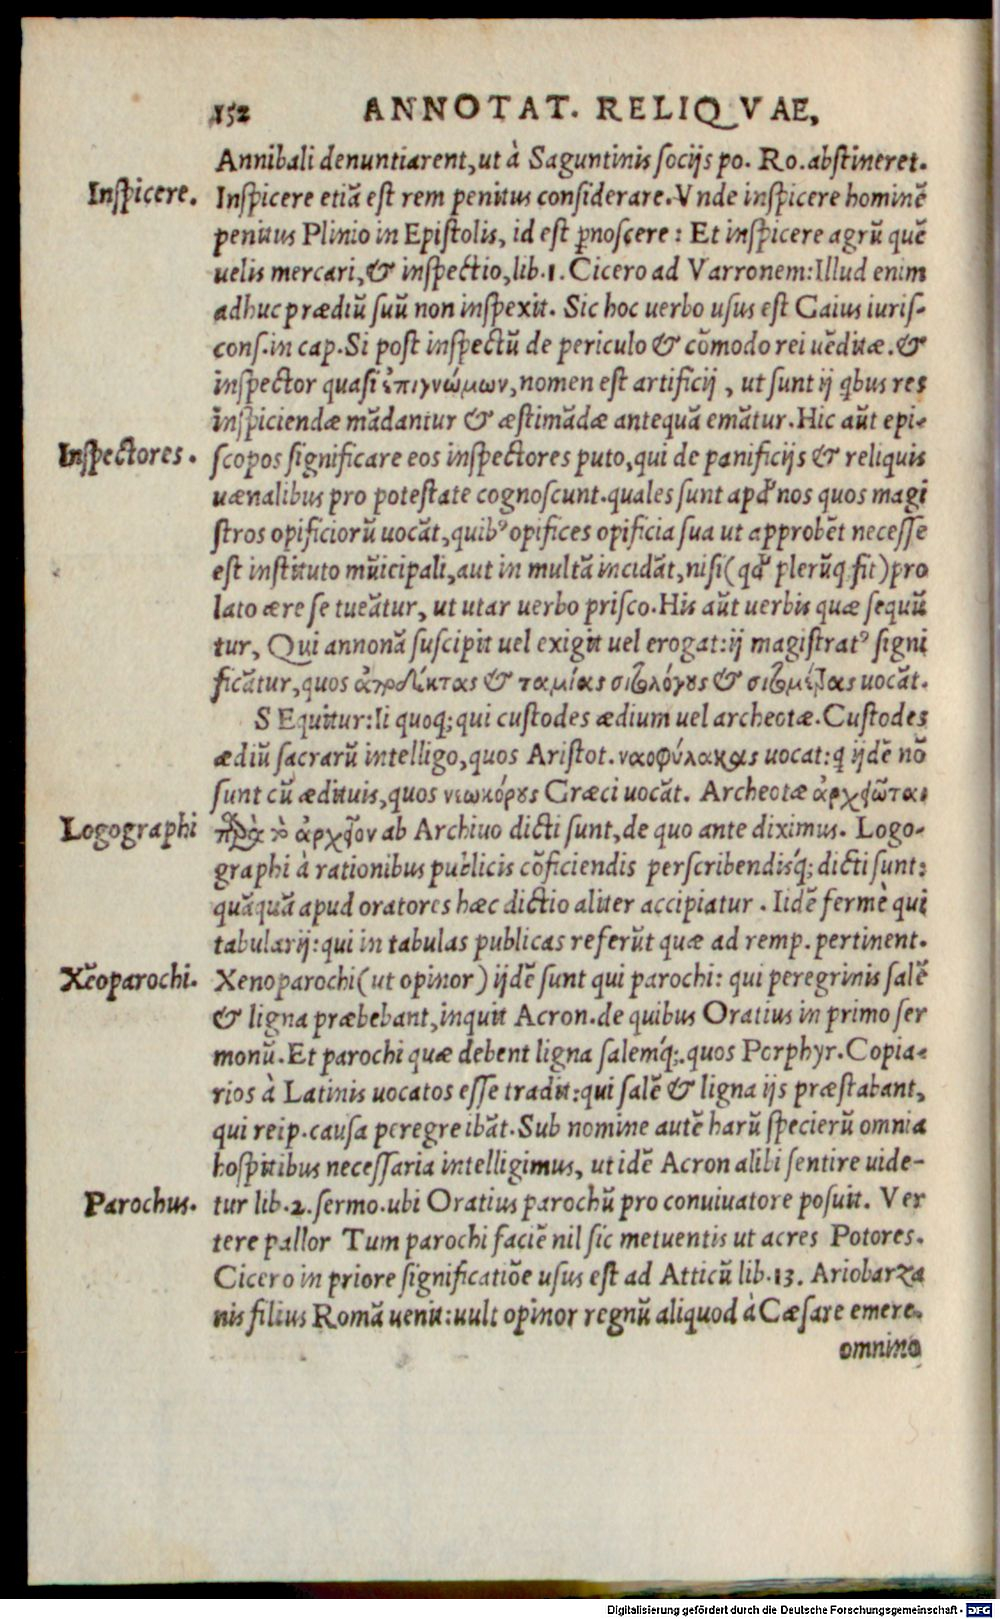 152 ANNOTAT. RELIQVAE,
Annibali denuntiarent, ut à Saguntinis socijs po. Ro. abstineret.
Inspicere.
Inspicere etiã est rem penitus considerare. Vnde inspicere hominẽ
penitus Plinio in Epistolis, id est ꝑnoscere: Et inspicere agrũ quẽ
uelis mercari, & inspectio, lib. 1. Cicero ad Varronem: Illud enim
adhuc prædiũ suũ non inspexit. Sic hoc uerbo usus est Gaius iuris-
cons. in cap. Si post inspectũ de periculo & cõmodo rei uẽditæ. &
inspector quasi ἐπιγνώμων, nomen est artificij, ut sunt ij ꝗbus res
inspiciendæ mãdantur & æstimãdæ antequã emãtur. Hic aũt epi-
Inspectores.
scopos significare eos inspectores puto, qui de panificijs & reliquis
uænalibus pro potestate cognoscunt. quales sunt apđ nos quos magi
stros opificiorũ uocãt, quibꝰ opifices opificia sua ut approbẽt necesse
est instituto mũicipali, aut in multã incidãt, nisi (qđ plerũq; fit) pro
lato ære se tueãtur, ut utar uerbo prisco. His aũt uerbis quæ sequũ
tur, Qui annonã suscipit uel exigit uel erogat: ij magistratꝰ signi
ficãtur, quos ἀποδέκτας & ταμίας σιτολόγους & σιτομέτρας uocãt.
SEquitur: Ii quoq; qui custodes ædium uel archeotæ. Custodes
ædiũ sacrarũ intelligo, quos Aristot. ναοφύλακας uocat: ꝗ ijdẽ nõ
sunt cũ ædituis, quos νεωκόρους Græci uocãt. Archeotæ ἀρχειῶται
Logographi
παρὰ τὸ ἀρχεῖον ab Archiuo dicti sunt, de quo ante diximus. Logo-
graphi à rationibus publicis cõficiendis perscribendisq́; dicti sunt:
quãquã apud oratores hæc dictio aliter accipiatur. Iidẽ fermè qui
tabularij: qui in tabulas publicas referũt quæ ad remp. pertinent.
Xẽoparochi.
Xenoparochi (ut opinor) ijdẽ sunt qui parochi: qui peregrinis salẽ
& ligna præbebant, inquit Acron. de quibus Oratius in primo ser
monũ. Et parochi quæ debent ligna salemq́;. quos Porphyr. Copia-
rios à Latinis uocatos esse tradit: qui salẽ & ligna ijs præstabant,
qui reip. causa peregre ibãt. Sub nomine autẽ harũ specierũ omnia
hospitibus necessaria intelligimus, ut idẽ Acron alibi sentire uide-
Parochus.
tur lib. 2. sermo. ubi Oratius parochũ pro conuiuatore posuit. Ver
tere pallor Tum parochi faciẽ nil sic metuentis ut acres Potores.
Cicero in priore significatiõe usus est ad Atticũ lib. 13. Ariobarza
nis filius Romã uenit: uult opinor regnũ aliquod à Cæsare emere.
omnino
Digitalisierung gefördert durch die Deutsche Forschungsgemeinschaft - DFG